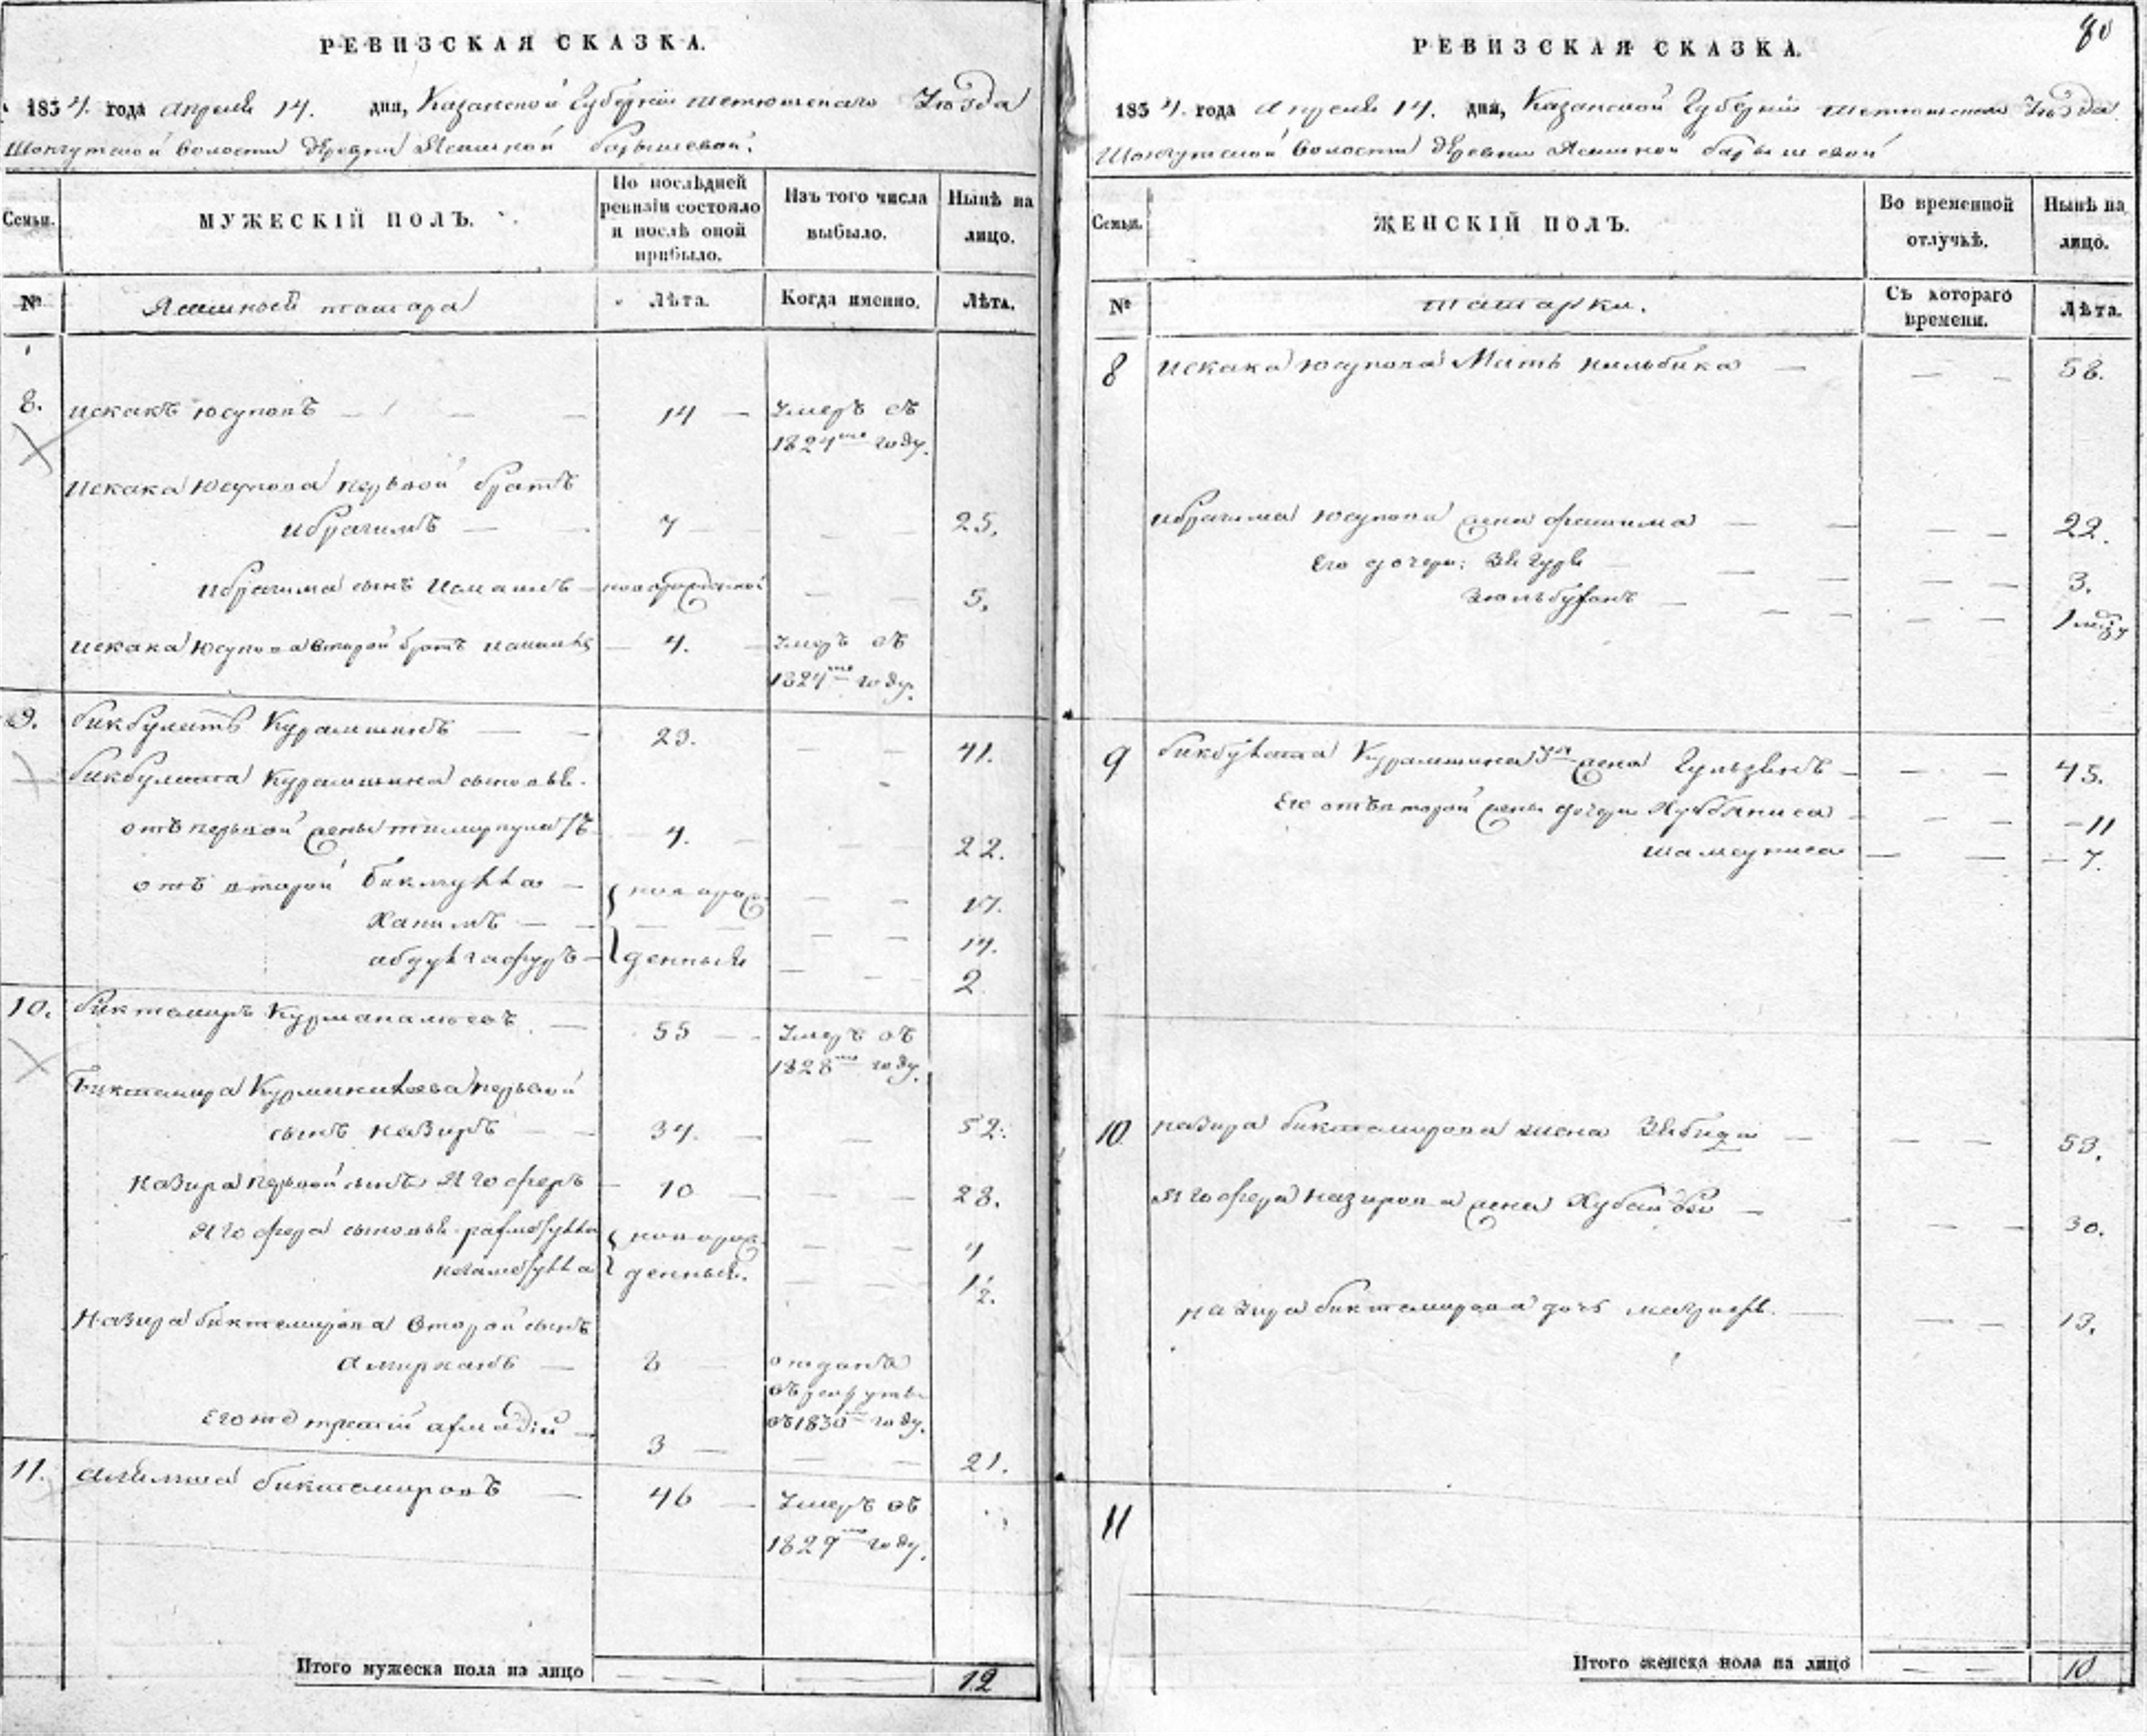 РЕВИЗСКАЯ СКАЗКА.
1834. года апреля 14. дня, Казанской Губернии тетюшскаго Уѣзда
Шонгутской волости деревни Ясашной барышевой.
Семьи.
МУЖЕСКІЙ ПОЛЪ.
По послѣдней ревизіи состояло и послѣ оной прибыло.
Изъ того числа выбыло.
Нынѣ на лицо.
№
Ясашной татара
Лѣта.
Когда именно.
Лѣта.
8. искакъ юсуповъ — 14 — Умеръ въ
1824го году.
Искака Юсупова первой братъ
ибрагимъ — 7 — — — 25.
ибрагима сынъ Исмаилъ — новорожденной — — 5.
искака Юсупова второй братъ — 4. — Умеръ въ
1824го году.
9. бикбулатъ Курамшинъ — 23. — — 41.
бикбулата Курамшина сыновья.
отъ первой жены — 4. — 22.
отъ второй бикмулла — новорож — — 17.
Халимъ — — — — 14.
абдулгафуръ — денныя — — 2
10. биктемиръ — 55 — Умеръ въ
1828го году.
Биктемира первой
сынъ назиръ — 34. — — 52.
назира первой сынъ Ягоферъ — 10 — — — 28.
Ягофера сыновья новорож — — 4
денныя. — — 1½.
Назира биктемирова второй сынъ
амирханъ — 8 — отданъ
въ рекруты
въ 1830 году.
его же третій ахмадій — 3 — — — 21.
11. биктемировъ — 46 — Умеръ въ
1827го году.
Итого мужеска пола на лицо — — 12
80
РЕВИЗСКАЯ СКАЗКА.
1834. года апреля 14. дня, Казанской Губернии тетюшскаго Уѣзда.
Шонгутской волости деревни Ясашной барышевой
Семьи.
ЖЕНСКІЙ ПОЛЪ.
Во временной отлучкѣ.
Нынѣ на лицо.
№
татарки.
Съ котораго времени.
Лѣта.
8 искака юсупова Мать — — — 58.
ибрагима юсупова жена фатима — — — 22.
Его дочери: — — — 3.
— — — 1
9 бикбулата Курамшина 3я жена — — — 45.
Его отъ второй жены дочери — — — 11
шамсуниса — — — 7.
10 назира биктемирова жена Зябида — — — 53.
Ягофера назирова жена — — — 30.
назира биктемирова дочь — — — 13.
11
Итого женска пола на лицо — — 10